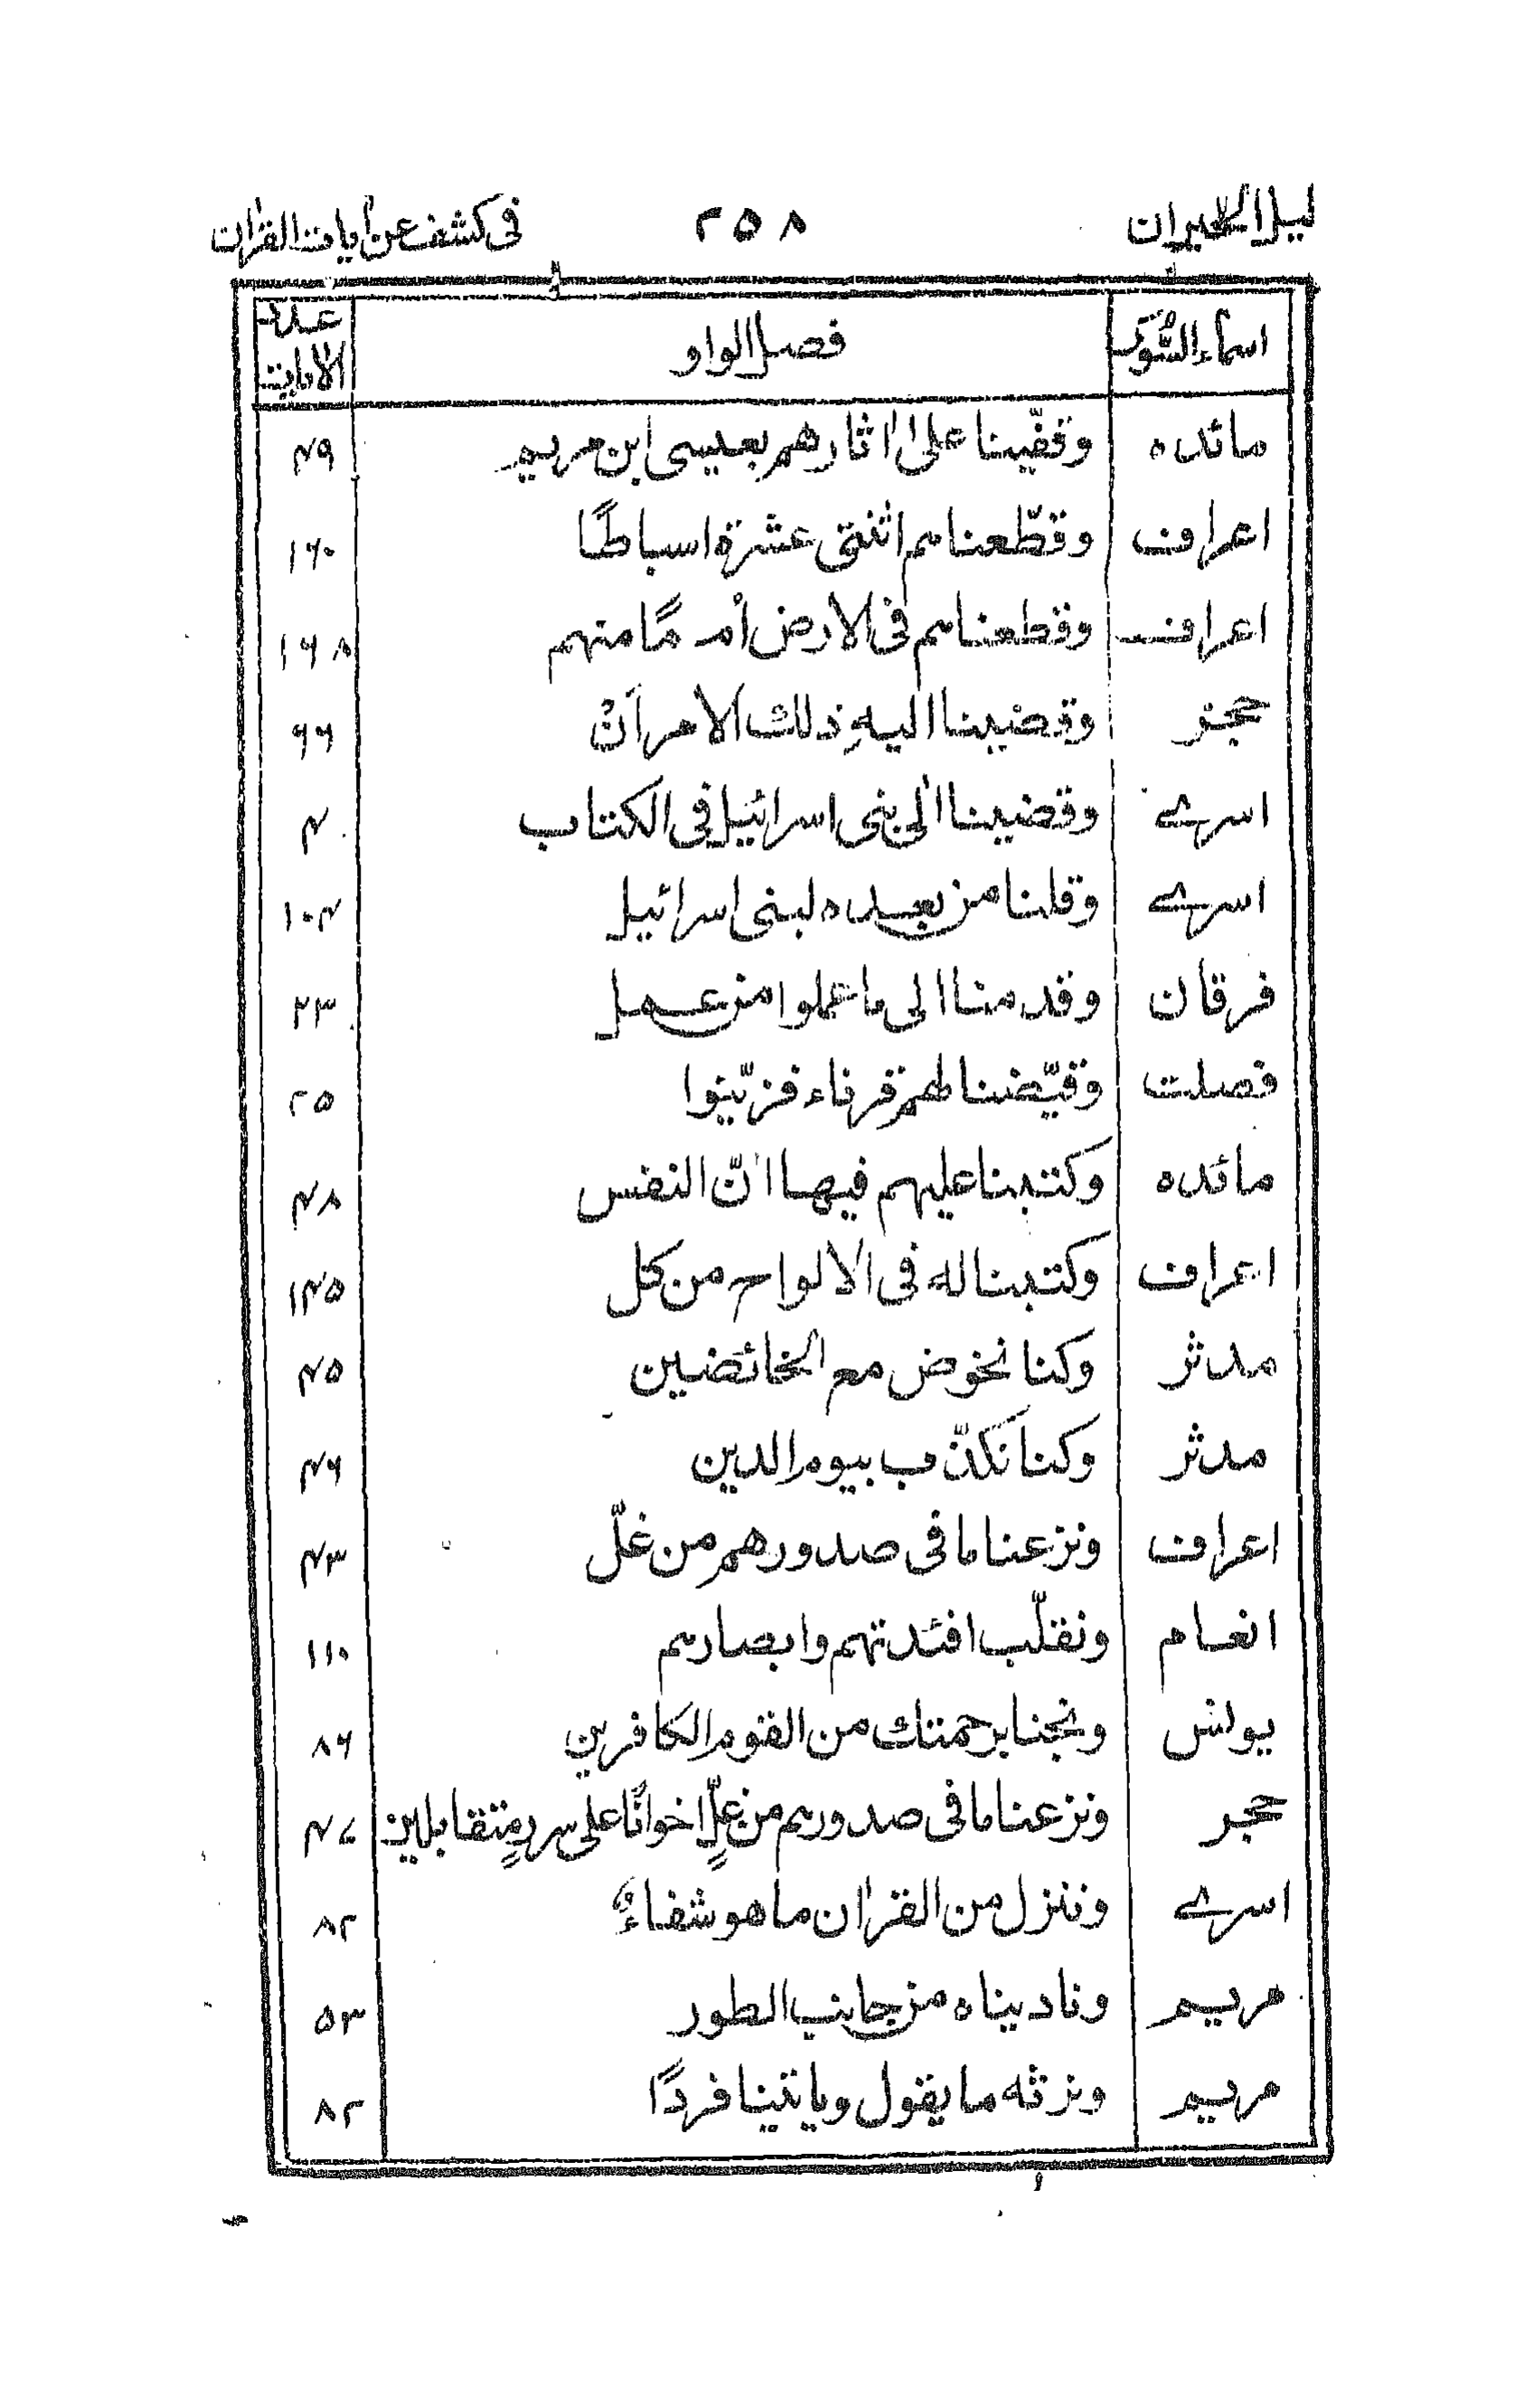 ليل الحيران ٢٥٨ فى كشف عن اٰيات القراٰن
اسماء السُّوَر فصل الواو عدد الاٰيات
مائده وقفّينا على اٰثارهم بعيسى ابن مريم ۴۹
اعراف وقطّعناهم اثنتى عشرة اسباطًا ۱۶۰
اعراف وقطعناهم فى الارض اُممًا منهم ۱۶۸
حجر وقضينا اليهِ ذلك الامر اَنّ ۶۶
اسرے وقضينا الٰى بنى اسرائيل فى الكتاب ۴
اسرے وقلنا من بعده لبنى اسرائيل ۱۰۴
فرقان وقدمنا الى ما عملوا من عمل ۲۳
فصلت وقيّضنا لهم قرناء فزيّنوا ۲۵
مائده وكتبنا عليهم فيها انّ النفس ۴۸
اعراف وكتبنا له فى الالواح من كل ۱۴۵
مدثر وكنا نخوض مع الخائضين ۴۵
مدثر وكنا نكذّب بيوم الدين ۴۶
اعراف ونزعنا ما فى صدورهم من غلّ ۴۳
انعام ونقلّب افئدتهم وابصارهم ۱۱۰
يونس ونجنا برحمتك من القوم الكافرين ۸۶
حجر ونزعنا ما فى صدورهم من غلٍّ اخوانًا على سررٍ متقابلين ۴۷
اسرے وننزل من القراٰن ما هو شفاءٌ ۸۲
مريم وناديناه من جانب الطور ۵۳
مريم ونرثه ما يقول وياتينا فردًا ۸۲